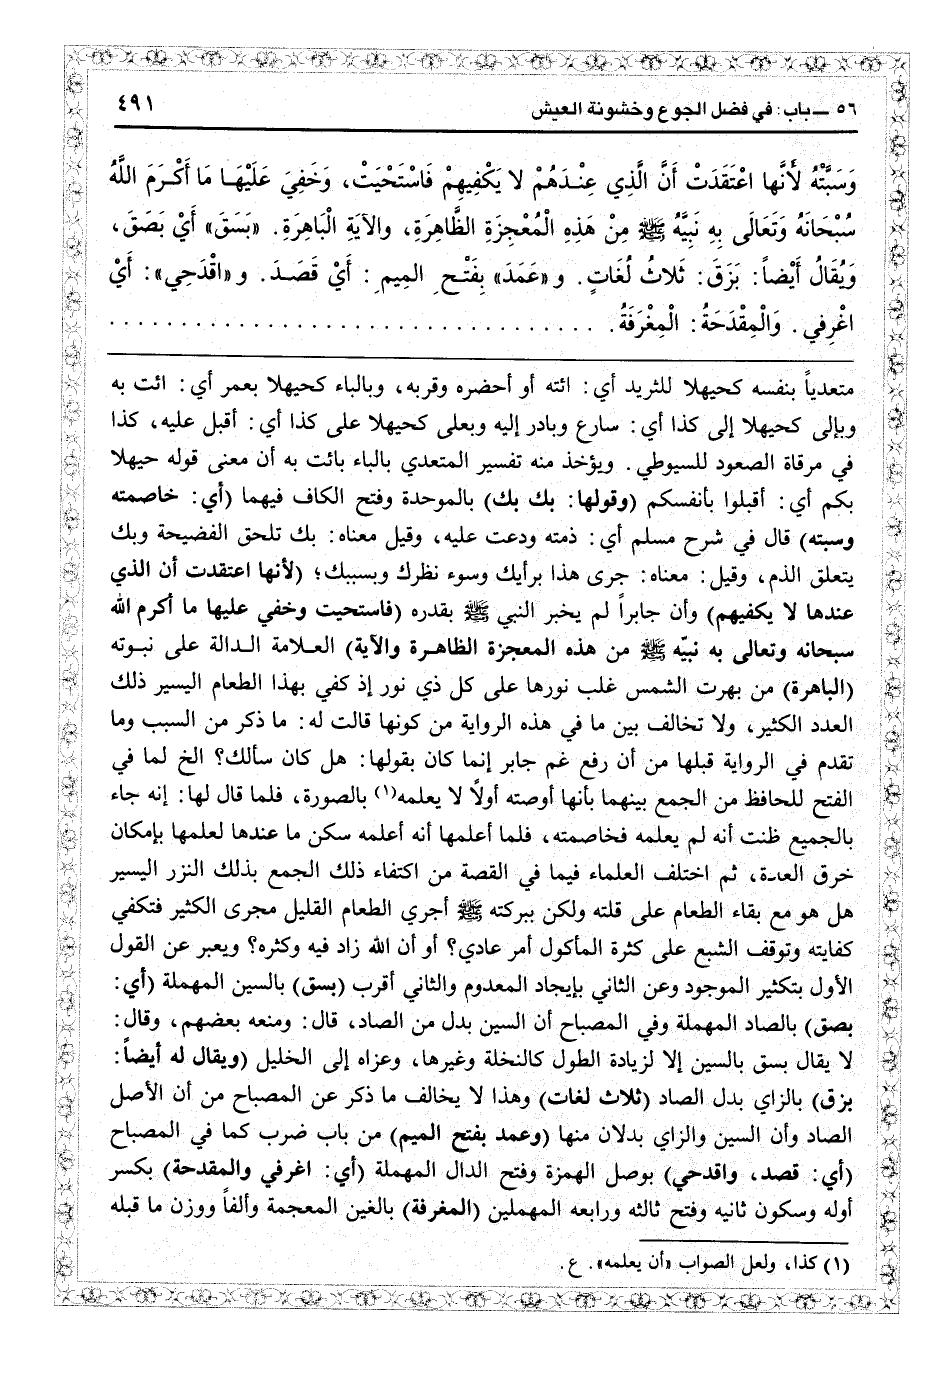 ٥٦ ــ باب: في فضل الجوع وخشونة العيش
٤٩١
وَسَبَّتْهُ لأَنَّها اعْتَقَدَتْ أَنَّ الَّذِي عِنْدَهُمْ لا يَكْفِيهِمْ فَاسْتَحْيَتْ، وَخَفِيَ عَلَيْهَا مَا أَكْرَمَ اللَّهُ
سُبْحَانَهُ وَتَعَالَى بِهِ نَبِيَّهُ ﷺ مِنْ هَذِهِ الْمُعْجِزَةِ الظَّاهِرَةِ، والآيَةِ الْبَاهِرَةِ. «بَسَقَ» أَيْ بَصَقَ،
وَيُقَالُ أَيْضاً: بَزَقَ: ثَلاثُ لُغَاتٍ. و «عَمَدَ» بِفَتْحِ الميمِ: أَيْ قَصَدَ. و «اقْدَحِي»: أَيْ
اغْرِفي. وَالْمِقْدَحَةُ: الْمِغْرَفَةُ. . . . . . . . . . . . . . . . . . . . . . . . . . . . . . . . . .
متعدياً بنفسه كحيهلا للثريد أي: ائته أو أحضره وقربه، وبالباء كحيهلا بعمر أي: ائت به
وبإلى كحيهلا إلى كذا أي: سارع وبادر إليه وبعلى كحيهلا على كذا أي: أقبل عليه، كذا
في مرقاة الصعود للسيوطي. ويؤخذ منه تفسير المتعدي بالباء بائت به أن معنى قوله حيهلا
بكم أي: أقبلوا بأنفسكم (وقولها: بك بك) بالموحدة وفتح الكاف فيهما (أي: خاصمته
وسبته) قال في شرح مسلم أي: ذمته ودعت عليه، وقيل معناه: بك تلحق الفضيحة وبك
يتعلق الذم، وقيل: معناه: جرى هذا برأيك وسوء نظرك وبسببك؛ (لأنها اعتقدت أن الذي
عندها لا يكفيهم) وأن جابراً لم يخبر النبي ﷺ بقدره (فاستحيت وخفي عليها ما أكرم الله
سبحانه وتعالى به نبيّه ﷺ من هذه المعجزة الظاهرة والآية) العلامة الدالة على نبوته
(الباهرة) من بهرت الشمس غلب نورها على كل ذي نور إذ كفي بهذا الطعام اليسير ذلك
العدد الكثير، ولا تخالف بين ما في هذه الرواية من كونها قالت له: ما ذكر من السبب وما
تقدم في الرواية قبلها من أن رفع غم جابر إنما كان بقولها: هل كان سألك؟ الخ لما في
الفتح للحافظ من الجمع بينهما بأنها أوصته أولاً لا يعلمه(١) بالصورة، فلما قال لها: إنه جاء
بالجميع ظنت أنه لم يعلمه فخاصمته، فلما أعلمها أنه أعلمه سكن ما عندها لعلمها بإمكان
خرق العادة، ثم اختلف العلماء فيما في القصة من اكتفاء ذلك الجمع بذلك النزر اليسير
هل هو مع بقاء الطعام على قلته ولكن ببركته ﷺ أجري الطعام القليل مجرى الكثير فتكفي
كفايته وتوقف الشبع على كثرة المأكول أمر عادي؟ أو أن الله زاد فيه وكثره؟ ويعبر عن القول
الأول بتكثير الموجود وعن الثاني بإيجاد المعدوم والثاني أقرب (بسق) بالسين المهملة (أي:
بصق) بالصاد المهملة وفي المصباح أن السين بدل من الصاد، قال: ومنعه بعضهم، وقال:
لا يقال بسق بالسين إلا لزيادة الطول كالنخلة وغيرها، وعزاه إلى الخليل (ويقال له أيضاً:
بزق) بالزاي بدل الصاد (ثلاث لغات) وهذا لا يخالف ما ذكر عن المصباح من أن الأصل
الصاد وأن السين والزاي بدلان منها (وعمد بفتح الميم) من باب ضرب كما في المصباح
(أي: قصد، واقدحي) بوصل الهمزة وفتح الدال المهملة (أي: اغرفي والمقدحة) بكسر
أوله وسكون ثانيه وفتح ثالثه ورابعه المهملين (المغرفة) بالغين المعجمة وألفاً ووزن ما قبله
(١) كذا، ولعل الصواب «أن يعلمه». ع.